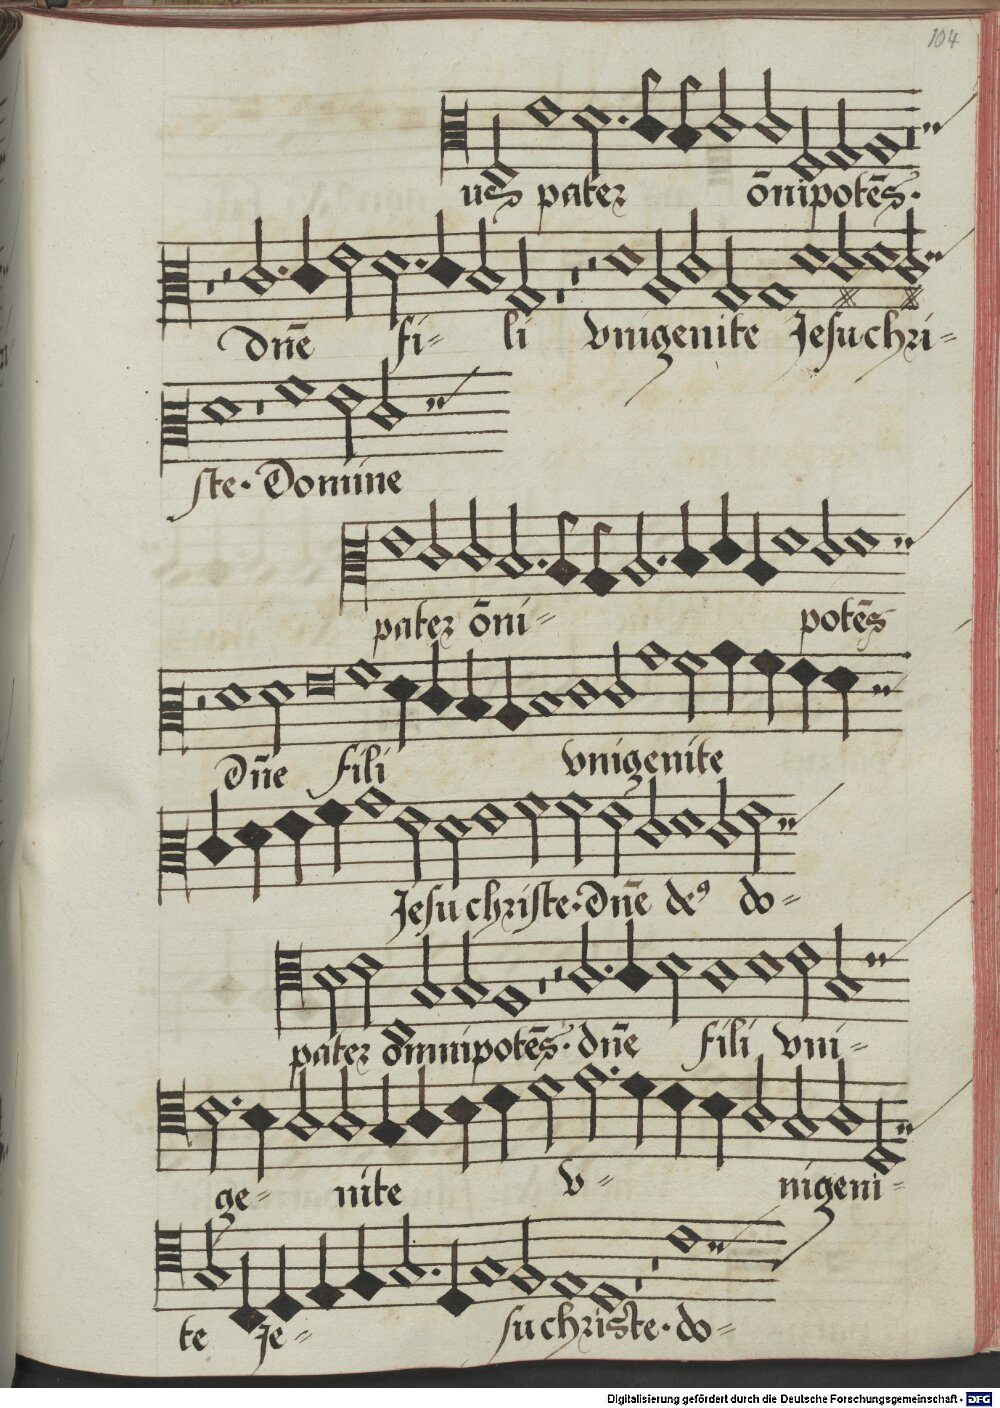 104
us pater ōnipotēs.
Dn̄e fi= li vnigenite Jesuchri=
ste. Domine
pater ōni= potēs
Dn̄e fili vnigenite
Jesuchriste. Dn̄e deꝰ do=
pater omnipotēs. dn̄e fili vni=
ge= nite v= nigeni=
te Je= suchriste. do=
Digitalisierung gefördert durch die Deutsche Forschungsgemeinschaft - DFG